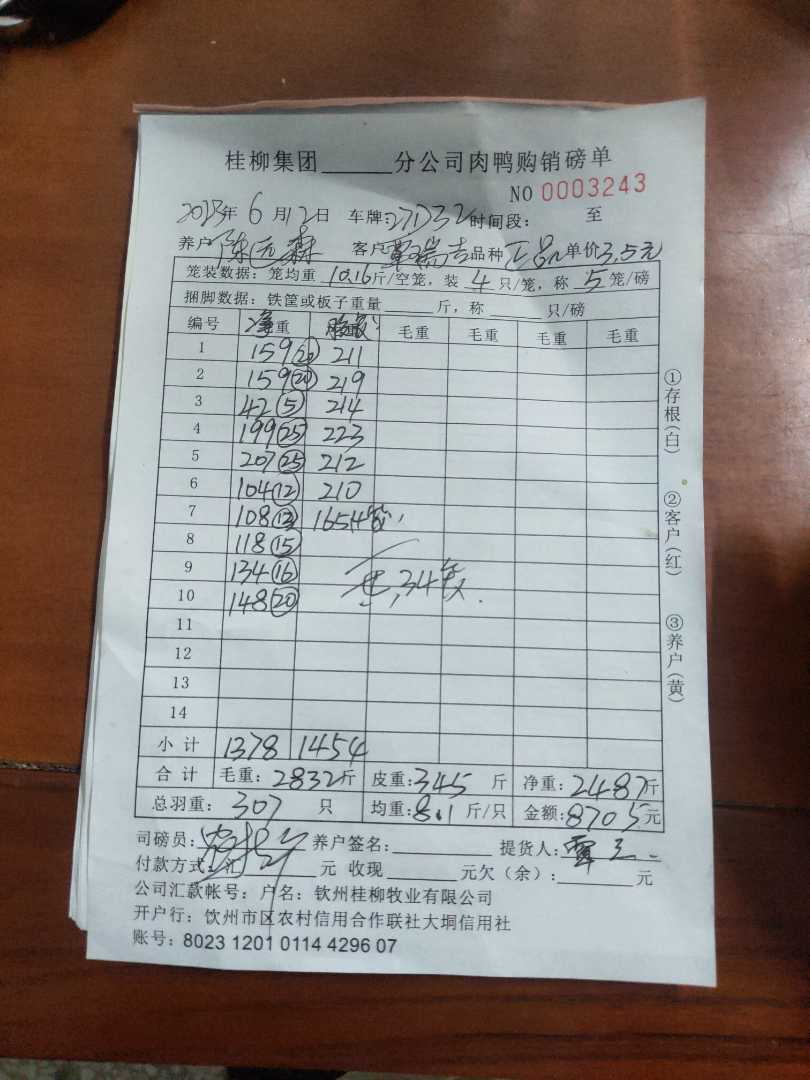 桂柳集团______分公司肉鸭购销磅单
NO 0003243
2023年 6 月 12 日 车牌: 时间段: 至
养户 陈 森 客户 覃瑞吉 品种 正品 单价 3.5元
笼装数据：笼均重 10.16 斤/空笼，装 4 只/笼，称 5 笼/磅
捆脚数据：铁筐或板子重量 ______ 斤，称 ______ 只/磅
编号 净重 毛重 毛重 毛重 毛重
1 159 (20) 211
2 159 (20) 219
3 42 (5) 214
4 199 (25) 223
5 207 (25) 212
6 104 (12) 210
7 108 (13) 165
8 118 (15)
9 134 (16)
10 148 (20)
11
12
13
14
小 计 1378 1454
合 计 毛重: 2832 斤 皮重: 345 斤 净重: 2487 斤
总羽重: 307 只 均重: 8.1 斤/只 金额: 8705 元
司磅员: 养户签名: ______ 提货人: 覃
付款方式: 汇 ______ 元 收现 ______ 元欠（余）: ______ 元
公司汇款帐号: 户名: 钦州桂柳牧业有限公司
开户行: 饮州市区农村信用合作联社大垌信用社
账号: 8023 1201 0114 4296 07
①存根(白)
②客户(红)
③养户(黄)